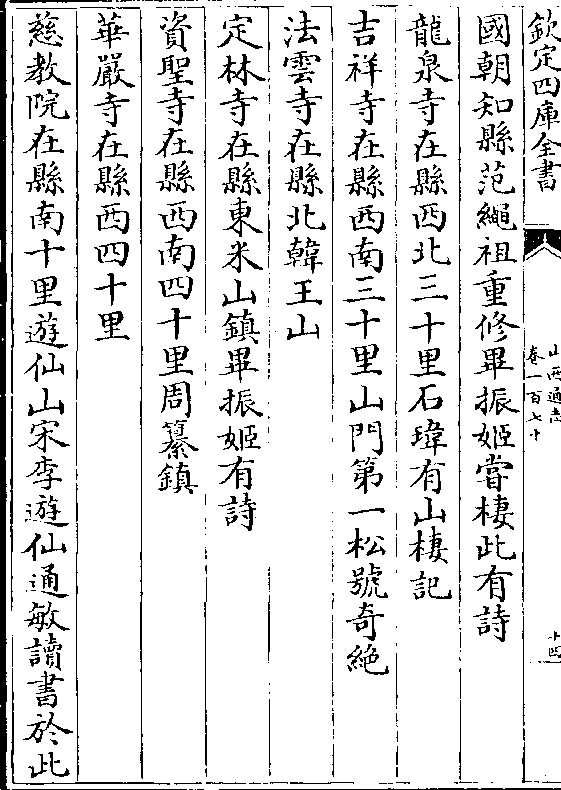 欽定四庫全書
山西通志
卷一百七十
十四
國朝知縣范繩祖重修畢振姬嘗棲此有詩
龍泉寺在縣西北三十里石瑋有山棲記
吉祥寺在縣西南三十里山門第一松號奇絶
法雲寺在縣北韓王山
定林寺在縣東米山鎮畢振姬有詩
資聖寺在縣西南四十里周纂鎮
華嚴寺在縣西四十里
慈教院在縣南十里遊仙山宋李遊仙通敏讀書於此